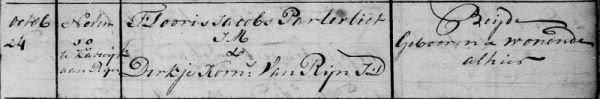 octob
24
Notm
30
te Katwijk
aan Rijn
Flooris Jacobs Parlevliet
J M
&
Dirkje Korns: Van Rijn J d
Beijde
Geboeren & wonende
alhier